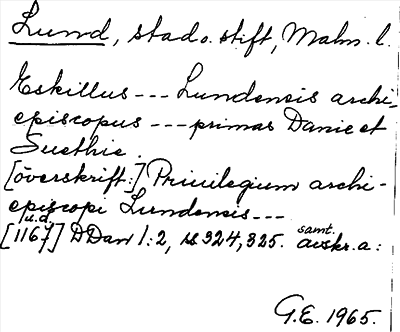 Lund, stad o. stift, Malm. l.
Eskillus --- Lundensis archi-
episcopus --- primas Danie et
Suethie
[överskrift:] Priuilegium archi-
episcopi Lundensis ---
u.d.
[1167] DDan I:2, ss 324, 325. samt. avskr. a:
G.E. 1965.